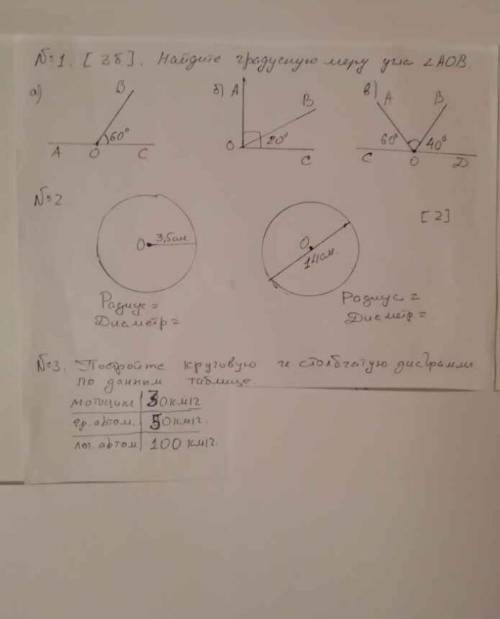 №1. [3б]. Найдите градусную меру угла ∠AOB.
а) B 60° A O C
б) A B 20° O C
в) A B 60° 40° C O D
№2
O 3,5см
O 14см.
[2]
Радиус =
Диаметр =
Радиус =
Диаметр =
№3. Постройте круговую и столбчатую диаграммы
по данным таблице
мотоцикл 30 км/ч
гр. автом. 50 км/ч.
лег. автом 100 км/ч.